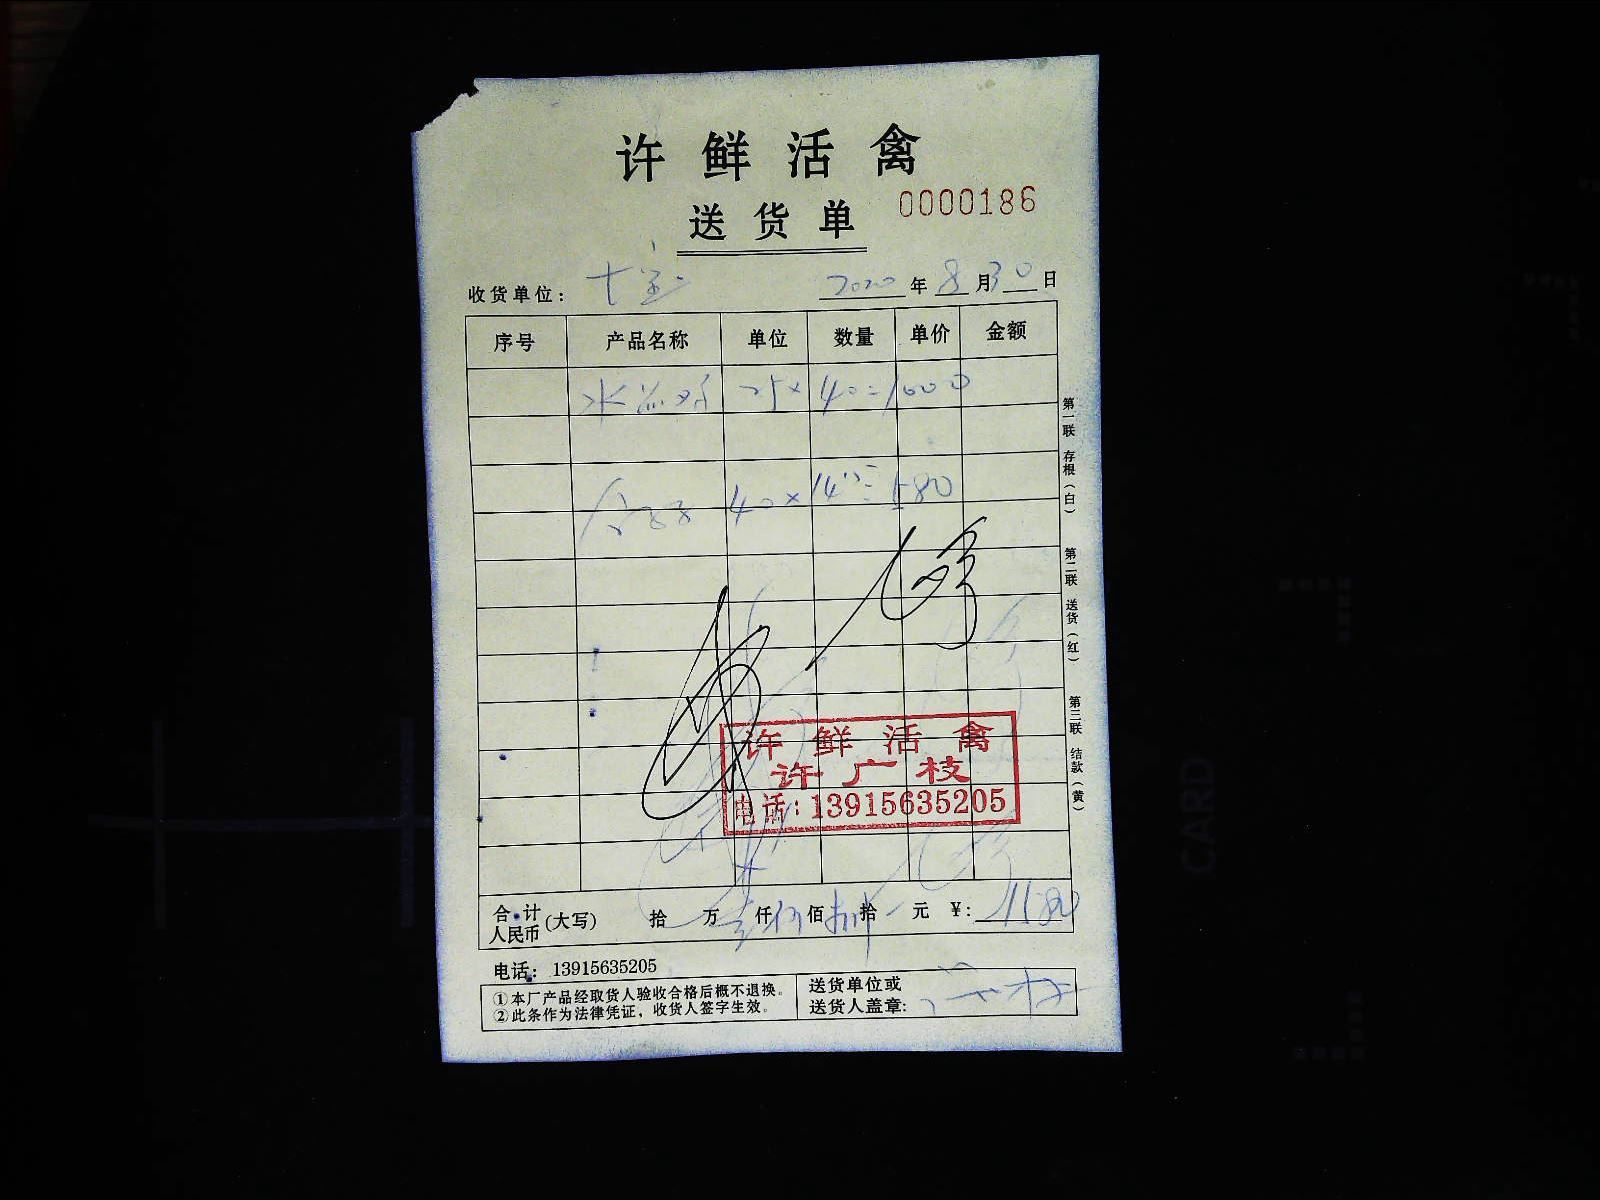 许鲜活禽
送货单 0000186
收货单位： 2020年8月30日
序号 产品名称 单位 数量 单价 金额
25×40=1000
40×14.5=580
第一联 存根（白）
第二联 送货（红）
第三联 结款（黄）
许鲜活禽
许广枝
电话：13915635205
合计人民币(大写) 拾 万 仟 佰 拾 元 ¥：1580
电话：13915635205
①本厂产品经取货人验收合格后概不退换。
②此条作为法律凭证，收货人签字生效。
送货单位或
送货人盖章：